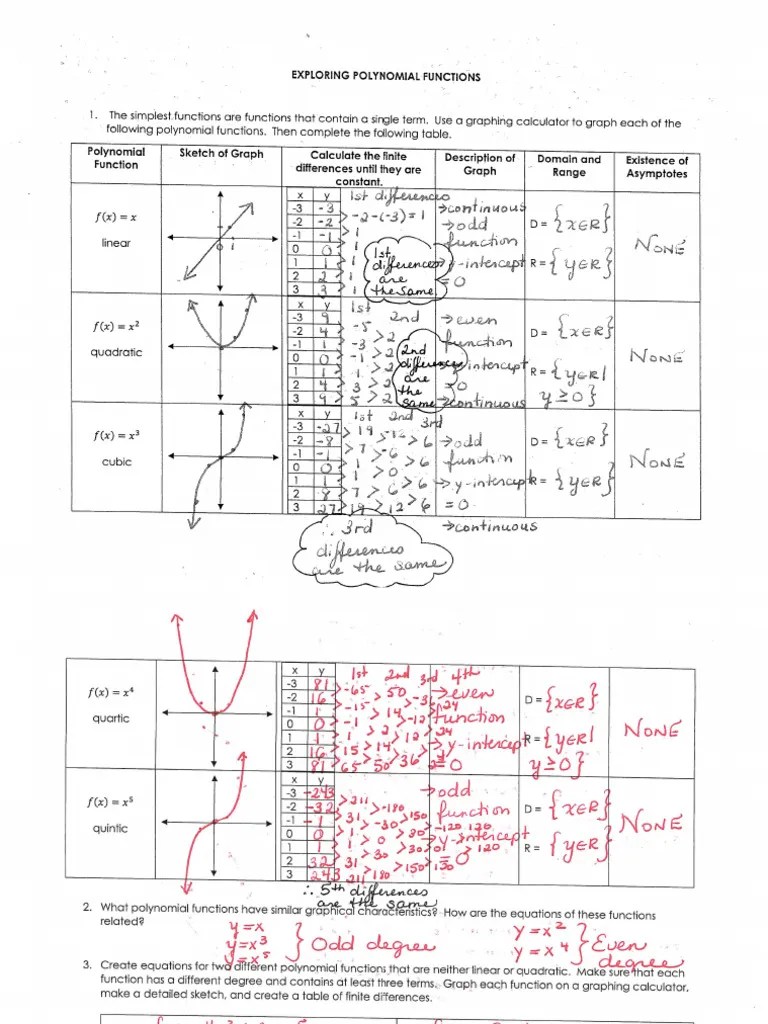 EXPLORING POLYNOMIAL FUNCTIONS
1. The simplest functions are functions that contain a single term. Use a graphing calculator to graph each of the
following polynomial functions. Then complete the following table.
Polynomial Function
Sketch of Graph
Calculate the finite differences until they are constant.
Description of Graph
Domain and Range
Existence of Asymptotes
f(x) = x
linear
1
x y 1st differences
-3 -3
-2 -2 > -2-(-3)=1
-1 -1 > 1
0 0 > 1
1 1 > 1
2 2 > 1
3 3 > 1
1st differences are the same
→continuous
→odd function
y-intercept = 0
D = {x∈R}
R = {y∈R}
NONE
f(x) = x²
quadratic
x y 1st 2nd
-3 9
-2 4 > -5
-1 1 > -3 > 2
0 0 > -1 > 2
1 1 > 1 > 2
2 4 > 3 > 2
3 9 > 5 > 2
2nd differences are the same
→even function
intercept = 0
→continuous
D = {x∈R}
R = {y∈R| y≥0}
NONE
f(x) = x³
cubic
x y 1st 2nd 3rd
-3 -27
-2 -8 > 19
-1 -1 > 7 > -12
0 0 > 1 > -6 > 6
1 1 > 1 > 0 > 6
2 8 > 7 > 6 > 6
3 27 > 19 > 12 > 6
∴ 3rd differences are the same
→odd function
→ y-intercept = 0
→continuous
D = {x∈R}
R = {y∈R}
NONE
f(x) = x⁴
quartic
x y 1st 2nd 3rd 4th
-3 81
-2 16 > -65
-1 1 > -15 > 50
0 0 > -1 > 14 > -36
1 1 > 1 > 2 > -12 > 24
2 16 > 15 > 14 > 12 > 24
3 81 > 65 > 50 > 36
→even function
→ y-intercept = 0
D = {x∈R}
R = {y∈R| y≥0}
NONE
f(x) = x⁵
quintic
x y
-3 -243
-2 -32 > 211
-1 -1 > 31 > -180
0 0 > 1 > -30 > 150
1 1 > 1 > 0 > 30 -120 120
2 32 > 31 > 30 > 30 0 > 120
3 243 211 > 180 > 150
∴ 5th differences are the same
→odd function
→ y-intercept = 0
D = {x∈R}
R = {y∈R}
NONE
2. What polynomial functions have similar graphical characteristics? How are the equations of these functions
related?
y=x
y=x³
y=x⁵
} Odd degree
y=x²
y=x⁴
} Even degree
3. Create equations for two different polynomial functions that are neither linear or quadratic. Make sure that each
function has a different degree and contains at least three terms. Graph each function on a graphing calculator,
make a detailed sketch, and create a table of finite differences.